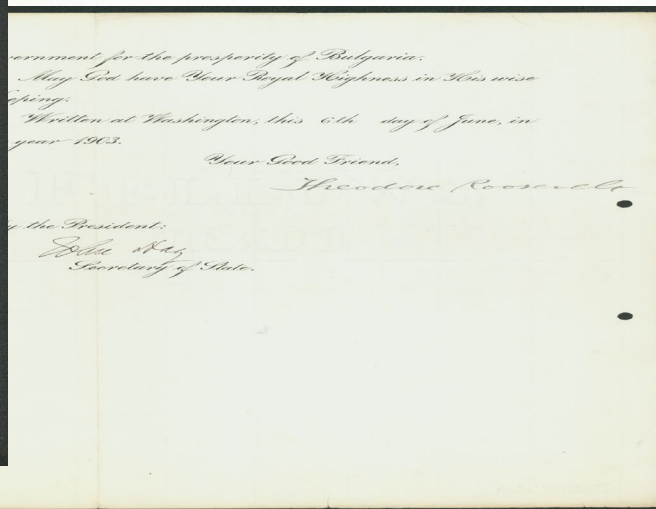 vernment for the prosperity of Bulgaria.
May God have Your Royal Highness in His wise
eeping.
Written at Washington, this 6th day of June, in
year 1903.
Your Good Friend,
Theodore Roosevelt
y the President:
John Hay
Secretary of State.